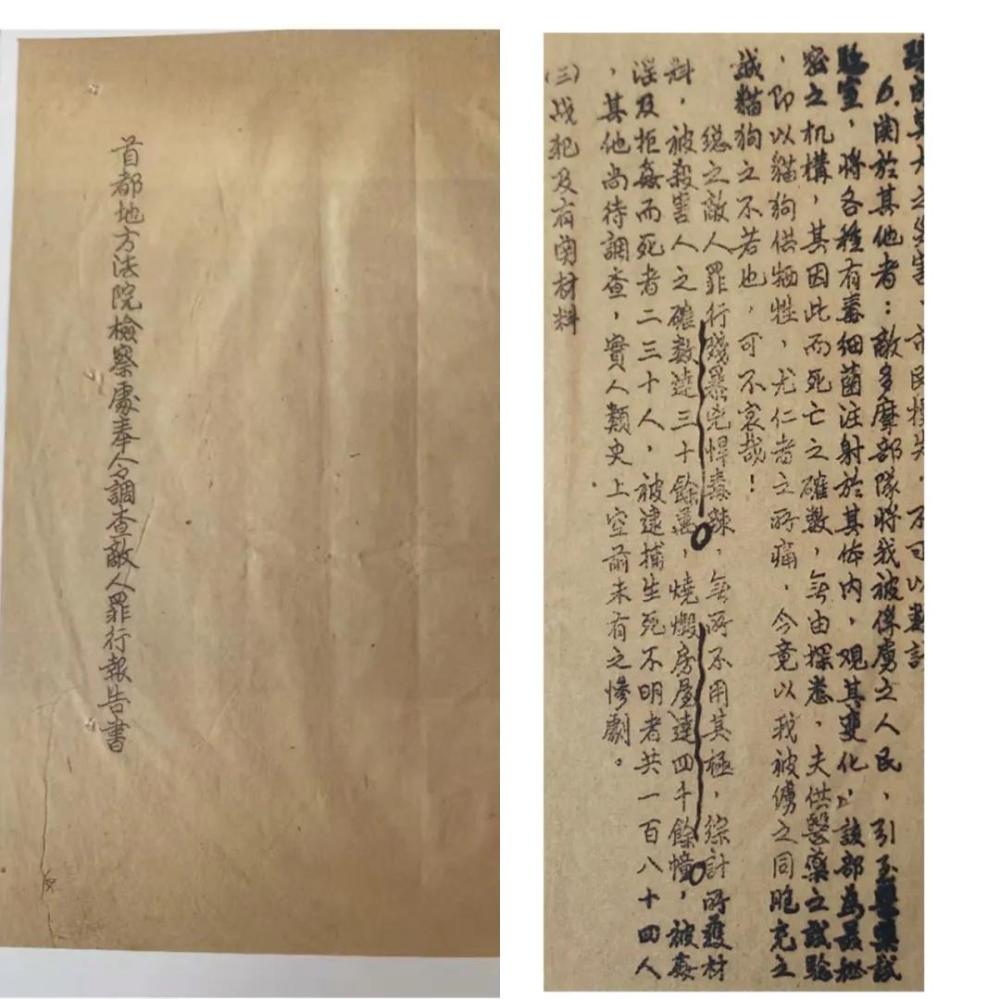 首都地方法院檢察處奉令調查敵人罪行報告書
之災害、市民損失，不可以數計
6.関於其他者：敵多摩部隊將我被俘虜之人民，引至醫藥試
驗室，將各種有毒细菌注射於其体内，观其变化，該部為最秘
密之机構，其因此而死亡之確数，無由探悉，夫供醫藥之試驗
，即以貓狗供牺牲，尤仁者之所痛，今竟以我被之同胞充之
誠貓狗之不若也，可不哀哉！
總之敵人罪行殘暴兇悍毒辣，無所不用其極，綜計所獲材
料，被殺害人之確数達三十餘萬，燒燬房屋達四千餘幢，被姦
淫及拒姦而死者二三十人，被逮捕生死不明者共一百八十四人
，其他尚待調查，實人類史上空前未有之慘劇。
(三)战犯及有関材料